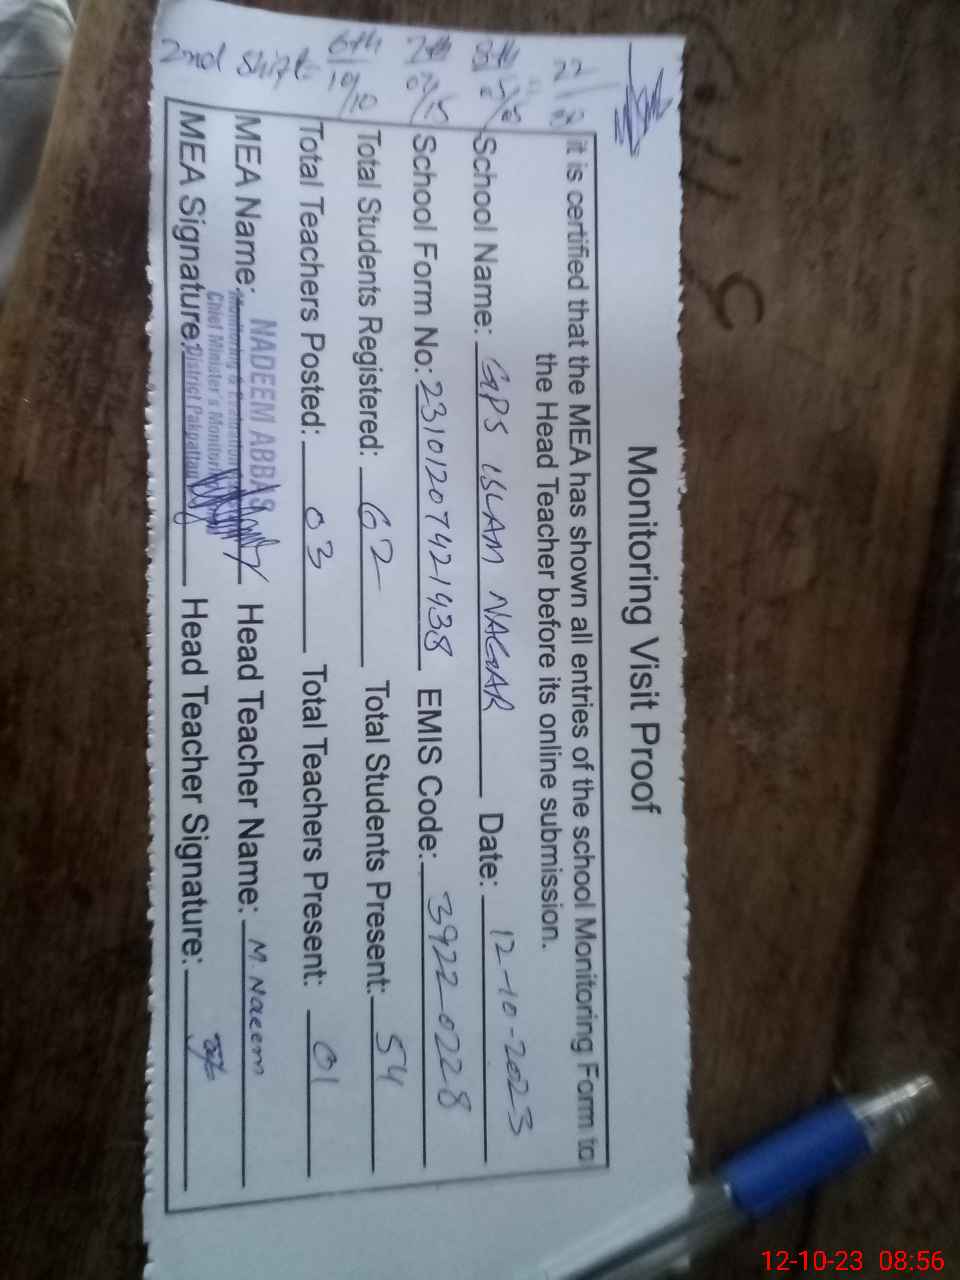 Monitoring Visit Proof
it is certified that the MEA has shown all entries of the school Monitoring Form to
the Head Teacher before its online submission.
School Name: GPS ISLAM NAGAR Date: 12-10-2023
School Form No: 23101207421438 EMIS Code: 3922-0228
Total Students Registered: 62 Total Students Present: 54
Total Teachers Posted: 03 Total Teachers Present: 01
MEA Name: NADEEM ABBAS Head Teacher Name: M. Naeem
Monitoring & Evaluation
Chief Minister's Monitor
MEA Signature: District Pakpattan Head Teacher Signature:
2nd Shift
6th 10/10
7th
8th
12-10-23 08:56